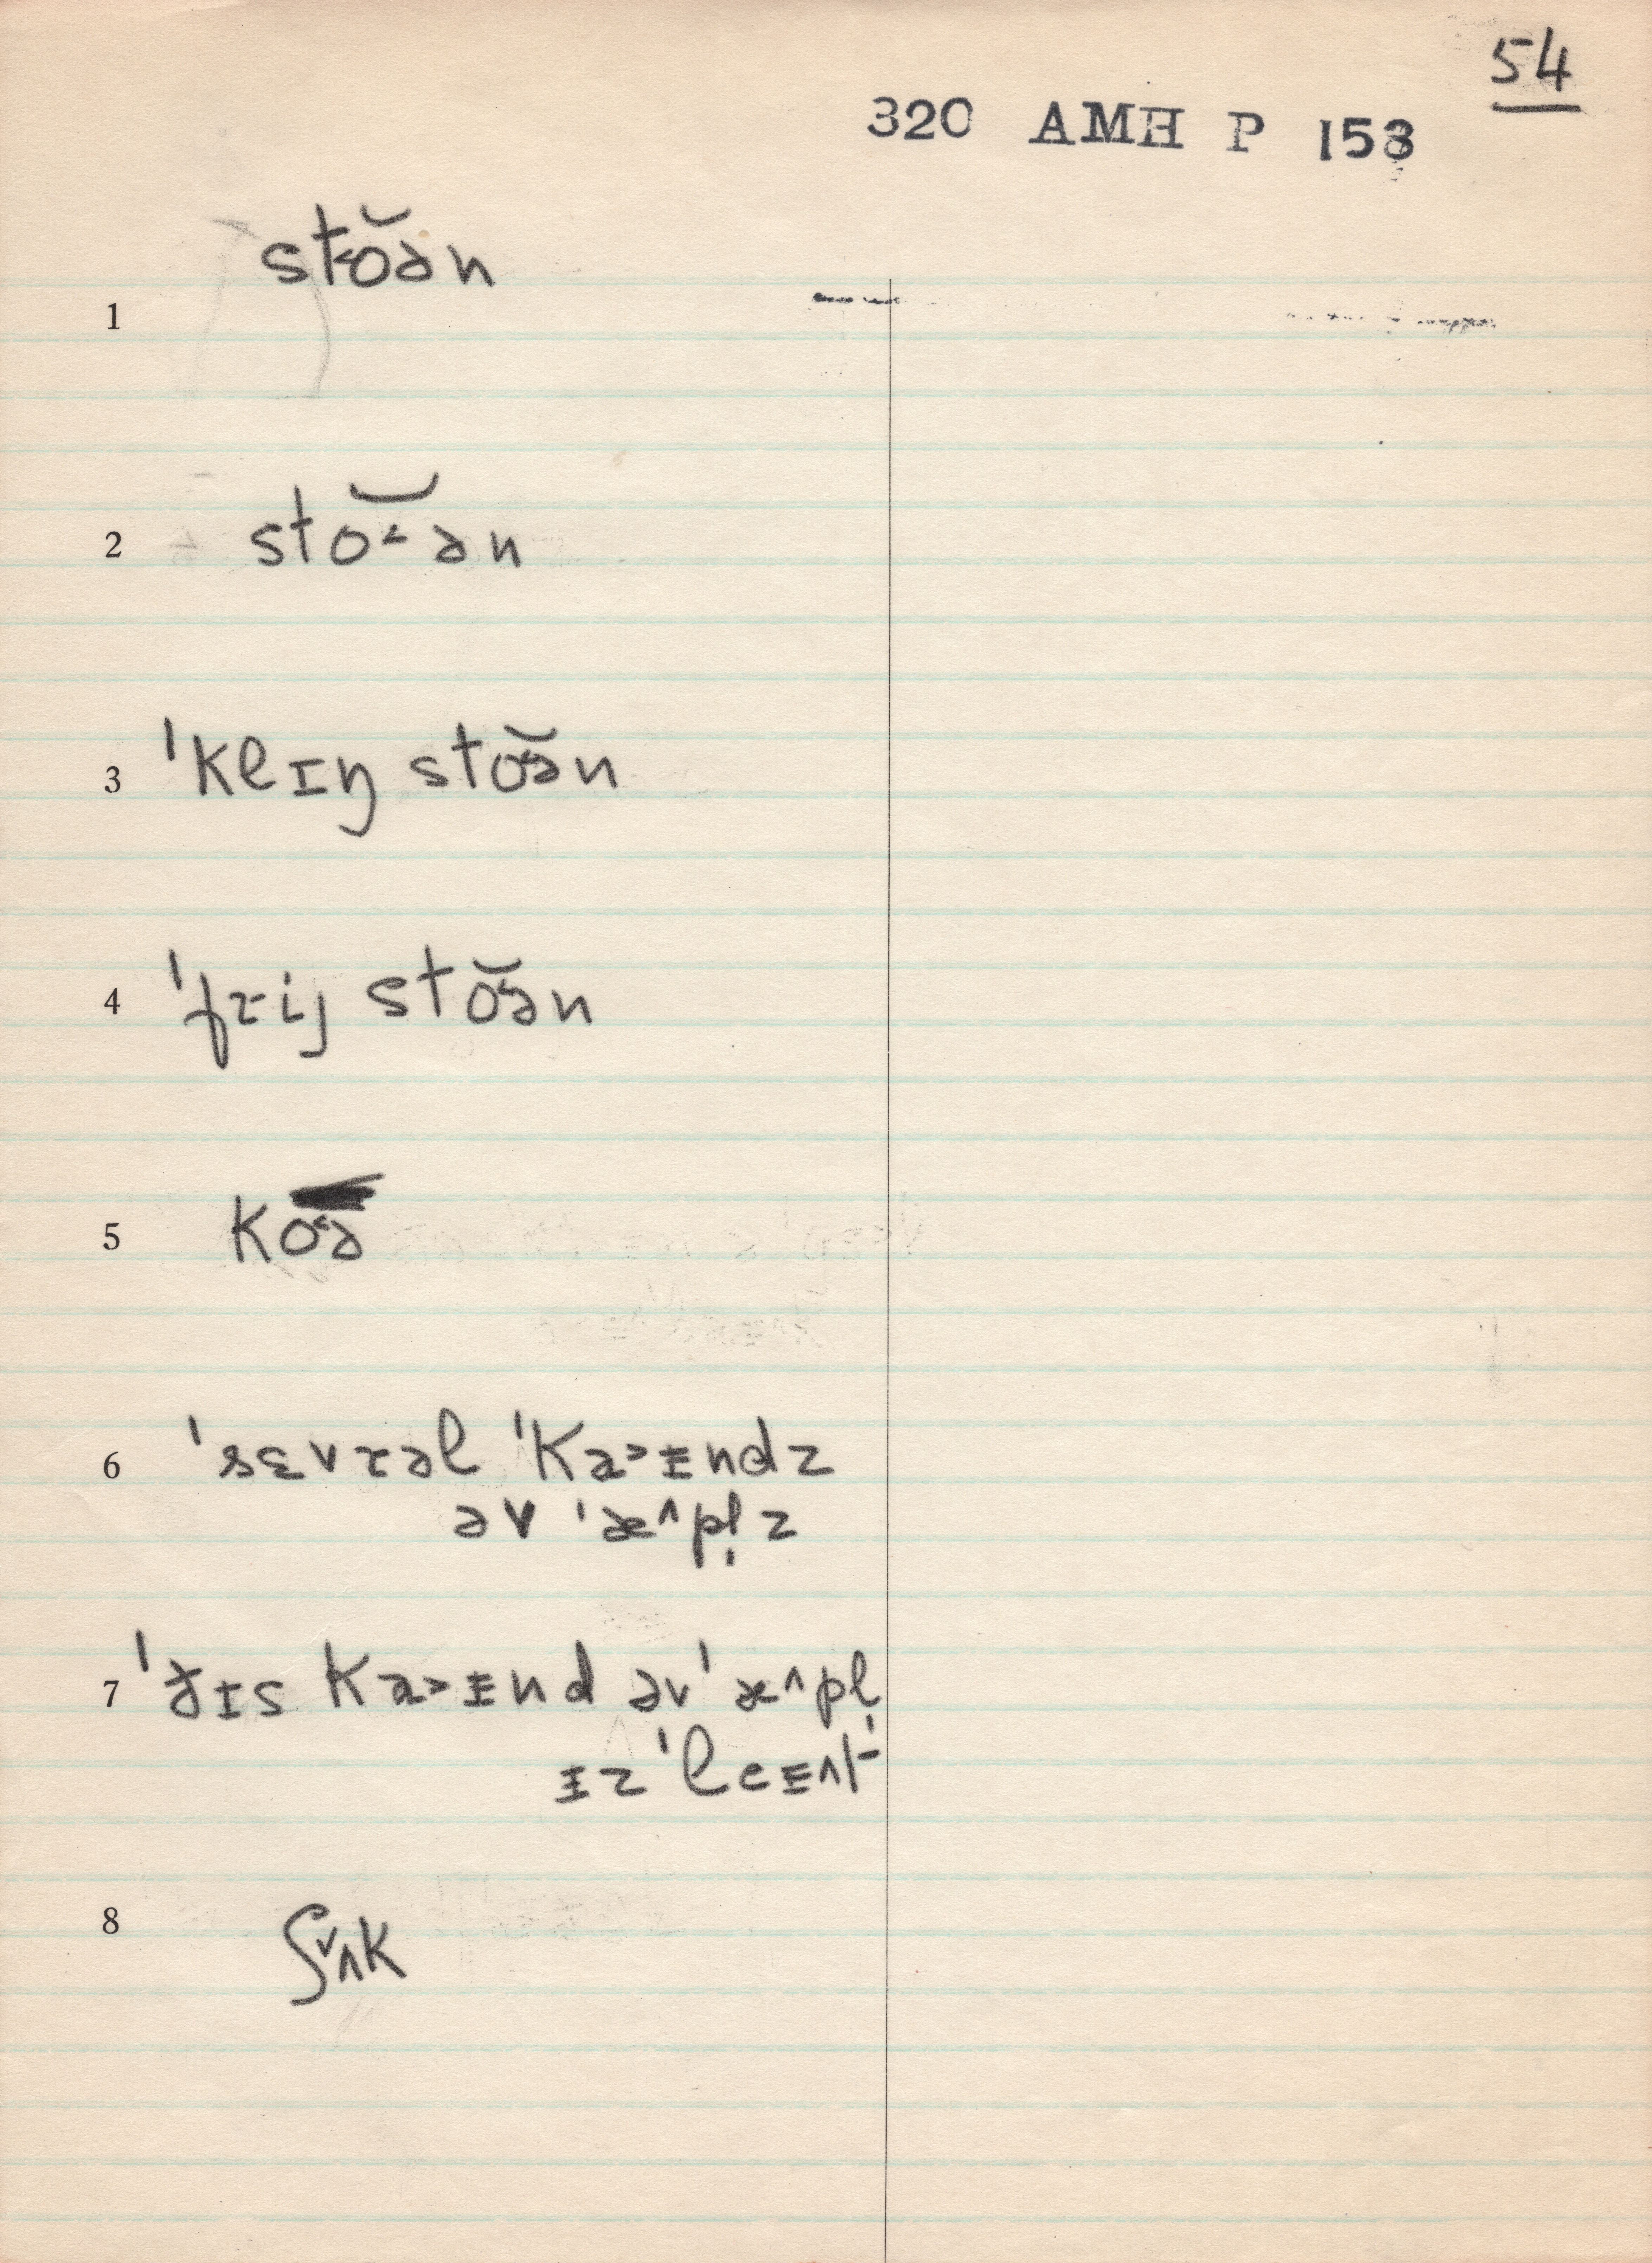 54
320 AMH P 153
1 sto˂ə̆n
2 sto˂ə̆n
3 ˈklɪŋ sto˂ə̆n
4 ˈfɾij sto˂ə̆n
5 ko˂ə
6 ˈsɛvɾəl ˈka˃ɪndz
əv ˈæ^pl̩z
7 ˈðɪs ka˃ɪnd əv ˈæ^pl̩
ɪz ˈleɪt
8 ʃʌ˅k